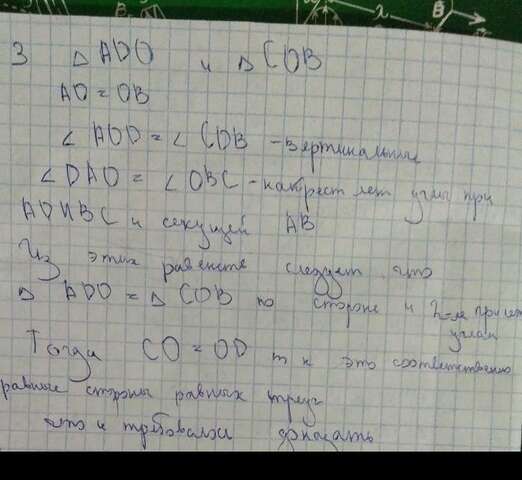 B
3 △ ADO и △ COB
AO = OB
∠ AOD = ∠ COB - вертикальные
∠ DAO = ∠ OBC - накрест леж углы при
AD ∥ BC и секущей AB
Из этих равенств следует что
△ ADO = △ COB по стороне и 2-м прилеж
углам
Тогда CO = OD т к это соответственно
равные стороны равных треуг
что и требовалось доказать